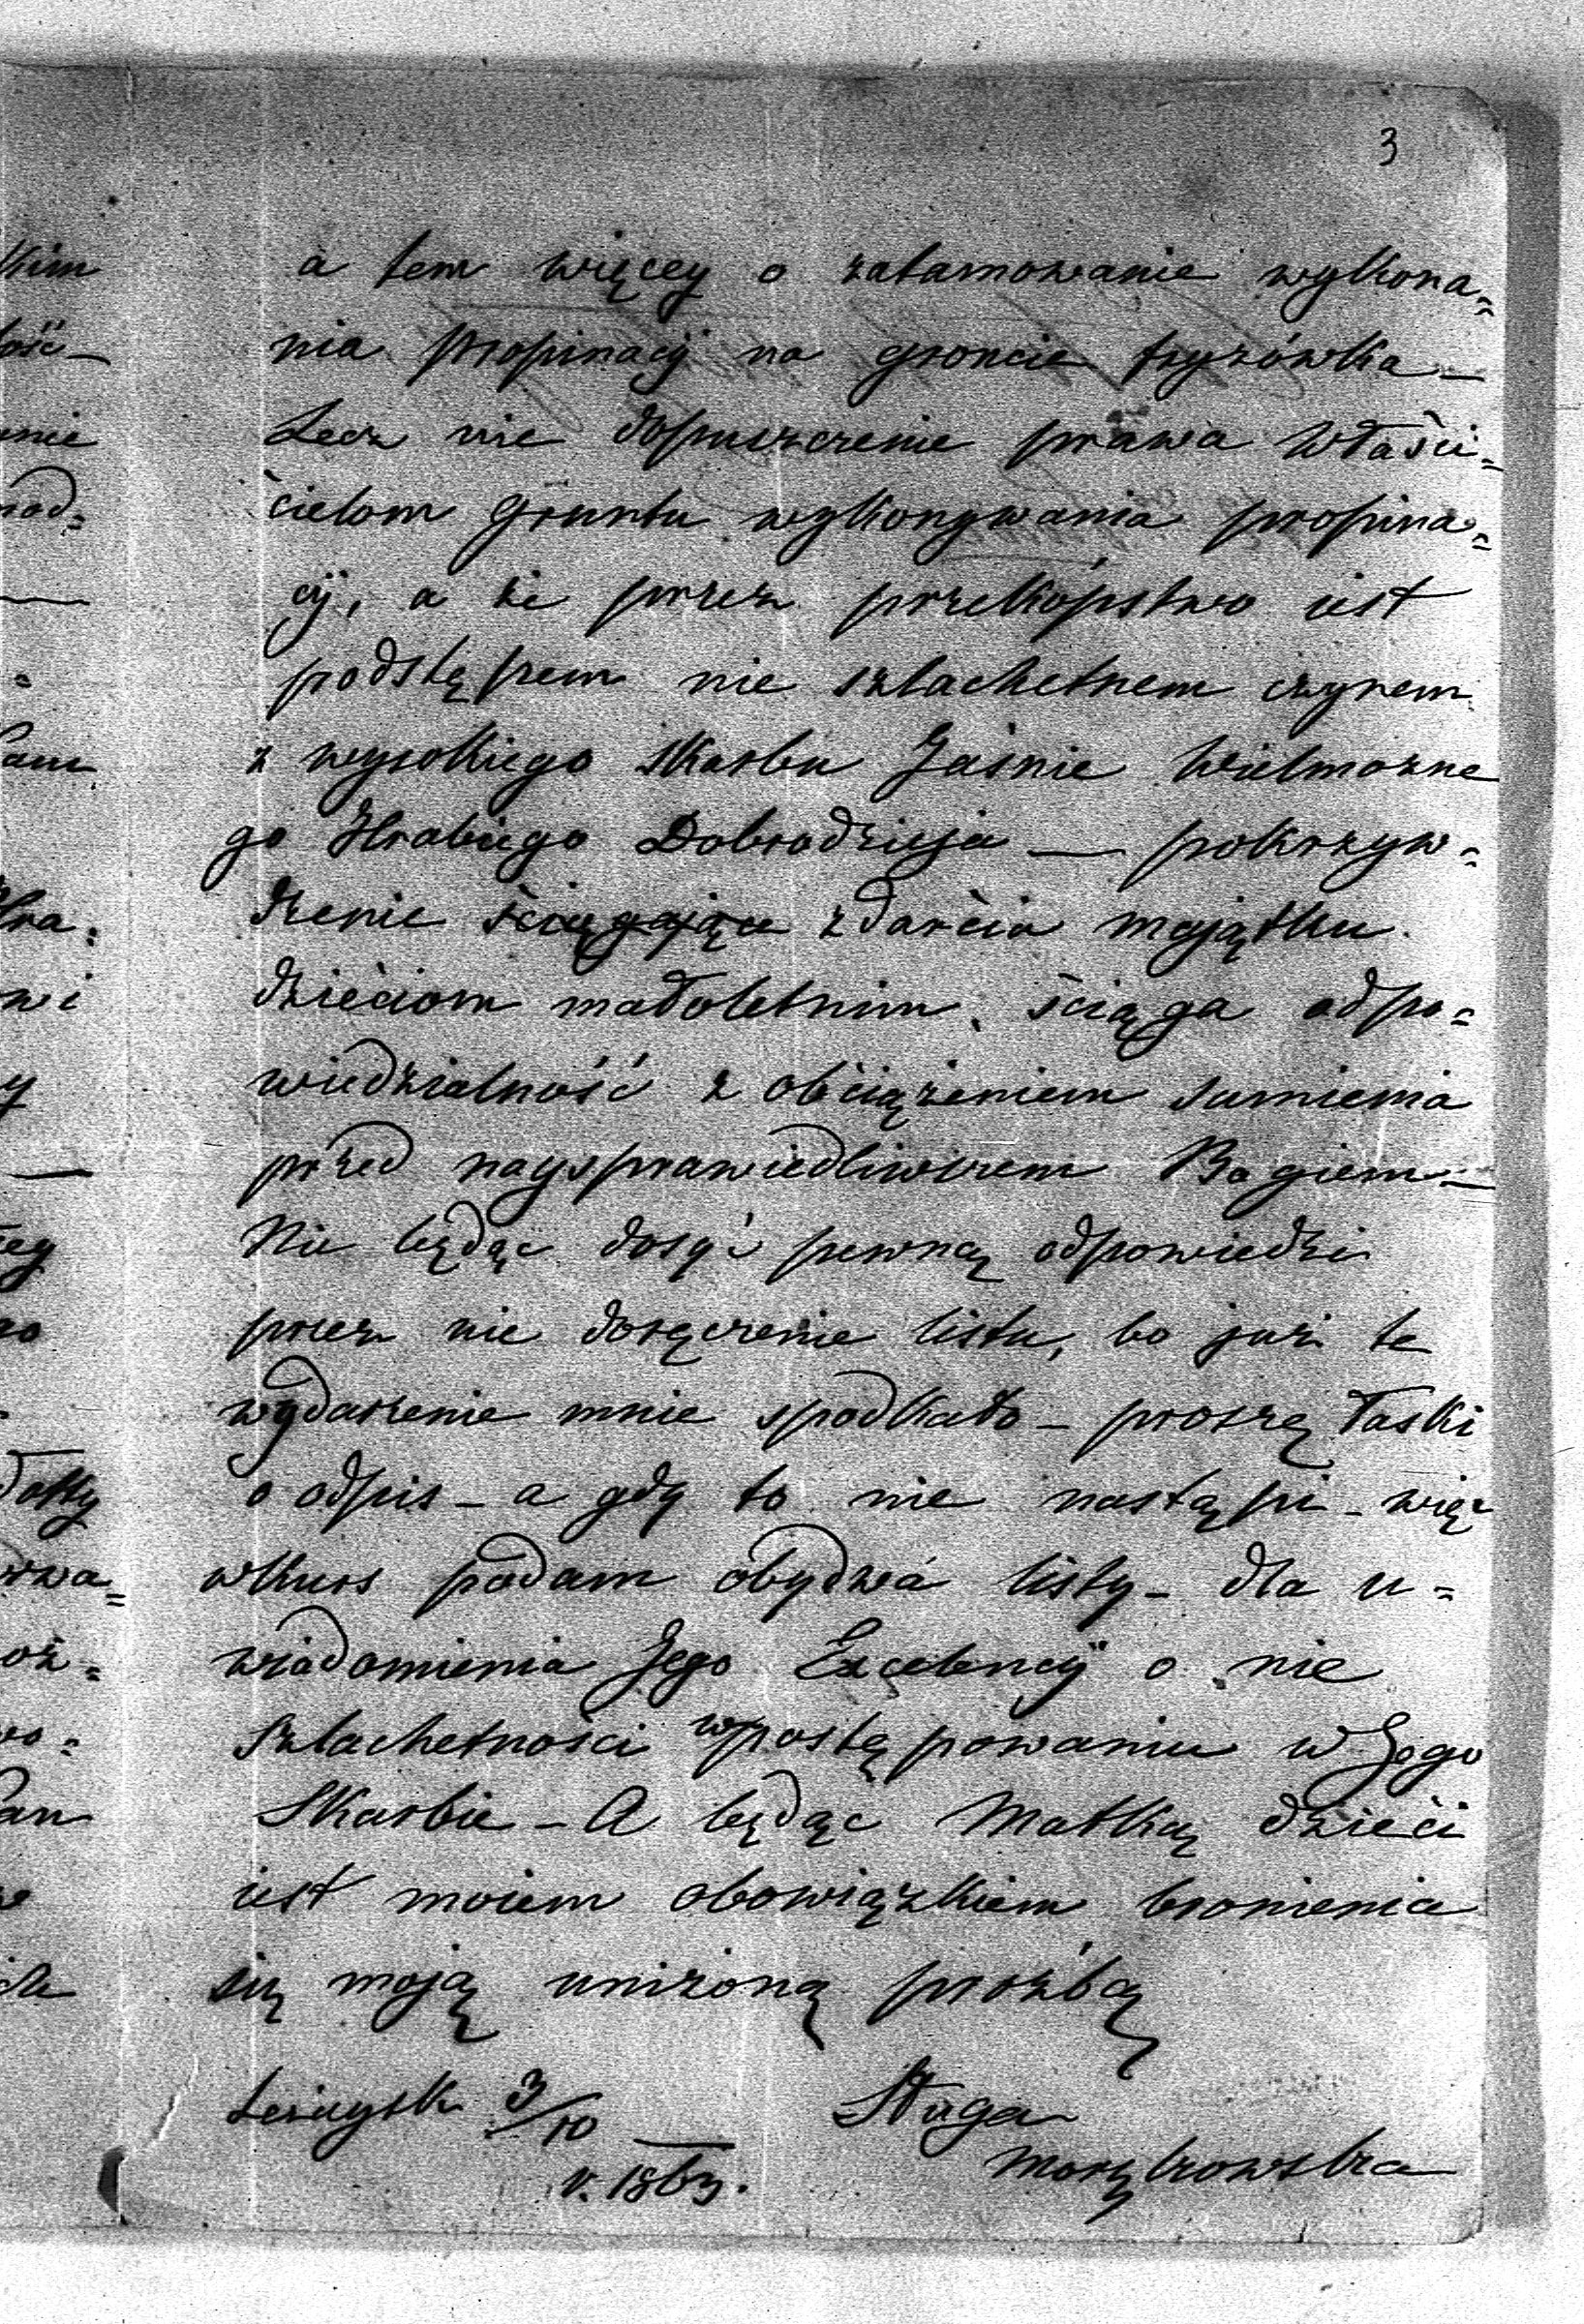 3
a tem więcey o zatamowanie wykona=
nia propinacÿ na groncie fryzówka —
Lecz nie dopuszczenie prawa Właści=
cielom Gruntu wykonywania propina=
cÿ, a że przez przekópstwo iest
podstępem nie szlachetnem czynem
z wysokiego skarbu Jaśnie Wielmożne
go Hrabiego Dobrodzieja — pokrzyw=
dzenie ściągające zdarcia majątku
dzieciom małoletnim, ściąga odpo=
wiedzialność z obciążeniem sumienia
przed naysprawiedliwszem Bogiem —
Nie będąc dosyć pewną odpowiedzi
przez nie doręczenie listu, bo już te
wydarzenie mnie spodkało — proszę łaski
o odpis — a gdy to nie nastąpi — więc
wkurs podam obydwa listy — dla u=
wiadomienia Jego Excelencÿ o nie
szlachetności w postępowaniu w Jego
Skarbie — A będąc Matką dzieci
iest moiem obowiązkiem bronienia
się moją uniżoną prozbą
Leżaysk 3/10
Sługa
r. 1863.